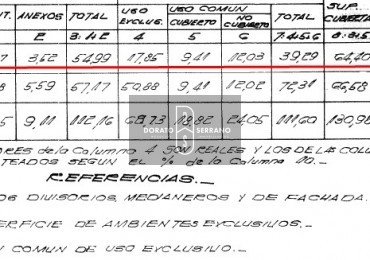 NT. ANEXOS TOTAL USO EXCLUS. USO COMUN CUBIERTO NO CUBIERTO TOTAL SUP. CUBIERTA
2 3:1+2 4 5 6 7:4+5+6
7 3,52 54,99 17,85 9,41 12,03 39,29 64,40
8 5,59 57,17 50,88 9,41 12,02 72,31 66,58
5 9,11 112,16 68,73 18,82 24,05 111,60 130,98
DORATO SERRANO
RES de la Columna 4 SON REALES Y LOS DE LA COLU
TEADOS SEGUN EL % de la Columna 10._
REFERENCIAS._
OS DIVISORIOS, MEDIANEROS Y DE FACHADA.
ERFICIE DE AMBIENTES EXCLUSIVOS._
COMUN DE USO EXCLUSIVO._